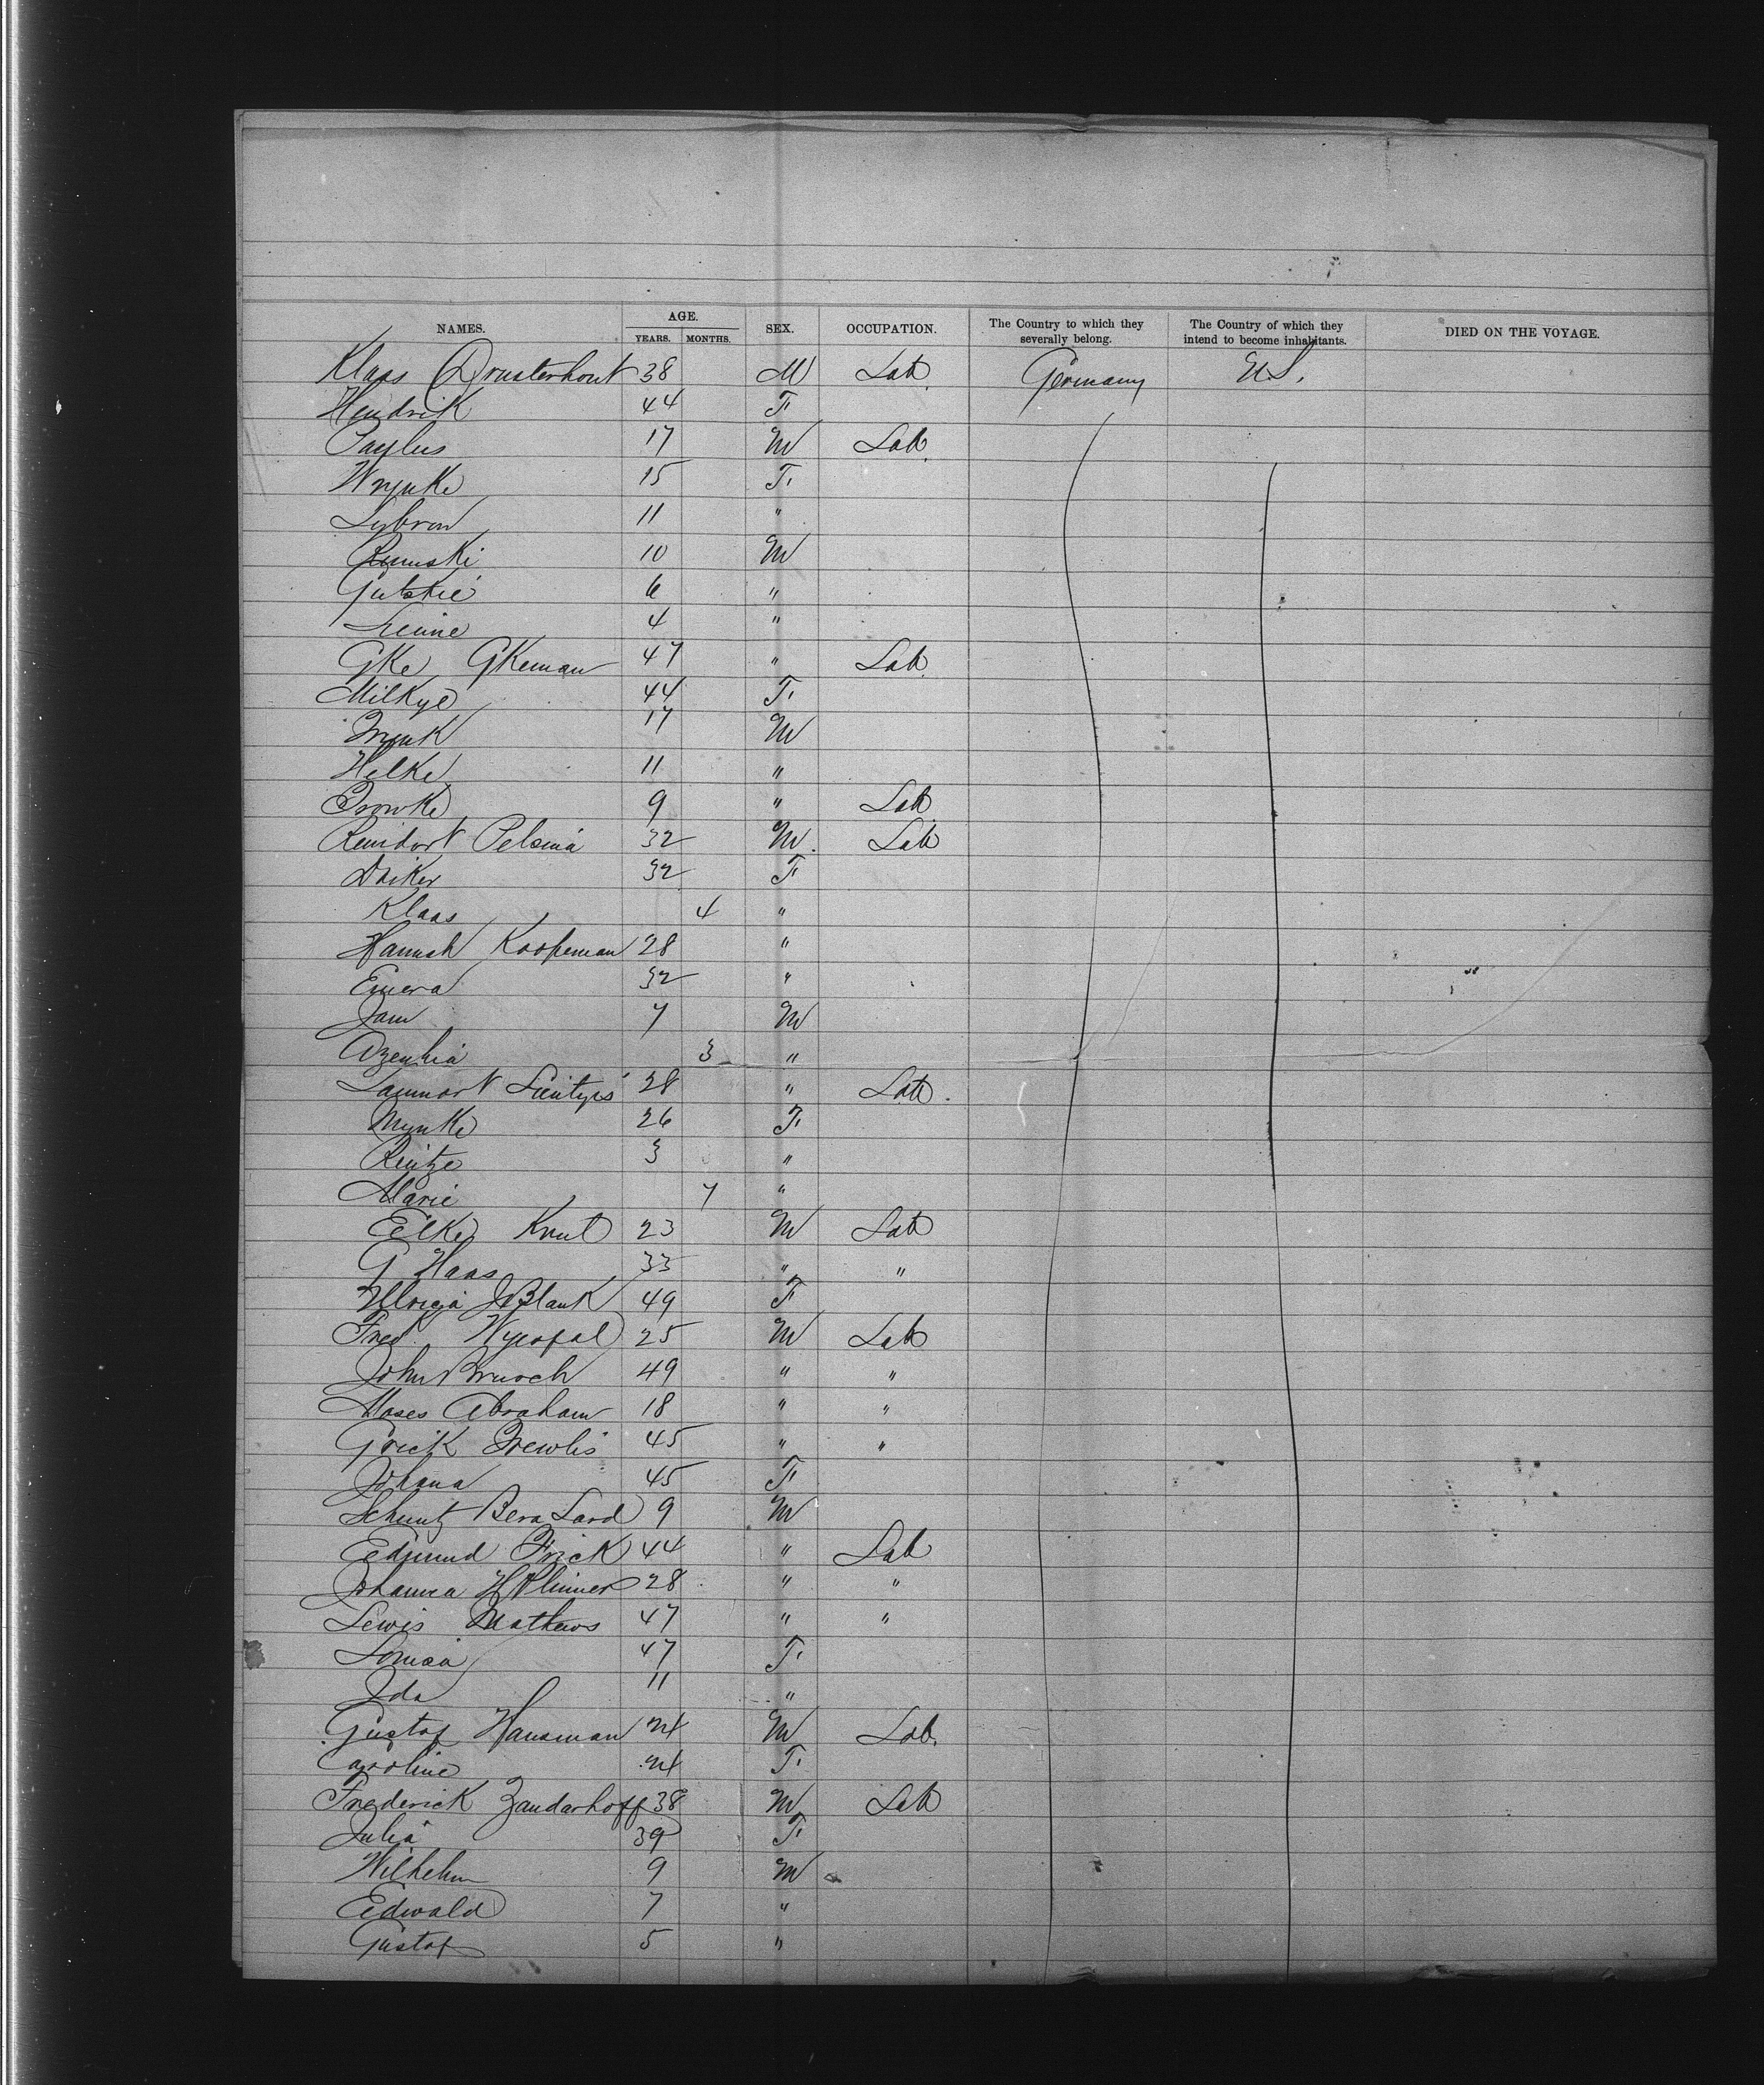 NAMES. AGE. SEX. OCCUPATION. The Country to which they severally belong. The Country of which they intend to become inhabitants. DIED ON THE VOYAGE.
YEARS. MONTHS.
Klaas 38 M Lab. Germany U.S.
Hendrik 44 F
Paylus 17 M Lab.
Wrynke 15 F
Sybron 11 "
10 M
Gutskie 6 "
4 "
Gke Gkeman 47 " Lab.
Milkye 44 F
17 M
Hilke 11 "
Bronke 9 " Lab
Reindort Pelsma 32 M. Lab
Daiker 32 F
Klaas 4 "
Hannah Koopeman 28 "
Emera 32 "
Jam 7 M
3 "
28 " Lab.
Mynke 26 F
Reitze 3 "
Marie 7 "
Eilke Knut 23 M Lab
G Haas 33 " "
49 F
Fred. Wycopal 25 M Lab
John Brusch 49 " "
Moses Abraham 18 " "
Grick Trewlis 45 " "
Johana 45 F
Schuntz 9 M
Edmund Frick 44 " Lab
Johanna 28 " "
Lewis Mathews 47 " "
Louisa 47 F
Ida 11 "
Gustaf Hausman 24 M Lab.
Caroline 24 F
Frederick Zandarhoff 38 M Lab
Julia 39 F
Wilhelm 9 M
Edwald 7 "
Gustaf 5 "